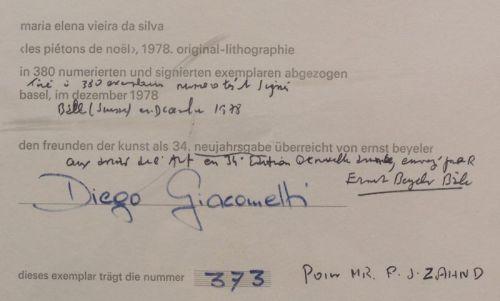 maria elena vieira da silva
‹les piétons de noël›, 1978. original-lithographie
in 380 numerierten und signierten exemplaren abgezogen
tiré à 380 exemplaires numeroté signé
basel, im dezember 1978
Bâle (Suisse) en Décembre 1978
den freunden der kunst als 34. neujahrsgabe überreicht von ernst beyeler
aux amis de l'Art en 34e Edition envoyé par
Ernst Beyeler Bâle
Diego Giacometti
dieses exemplar trägt die nummer 373
Pour MR. P. J. ZAHND